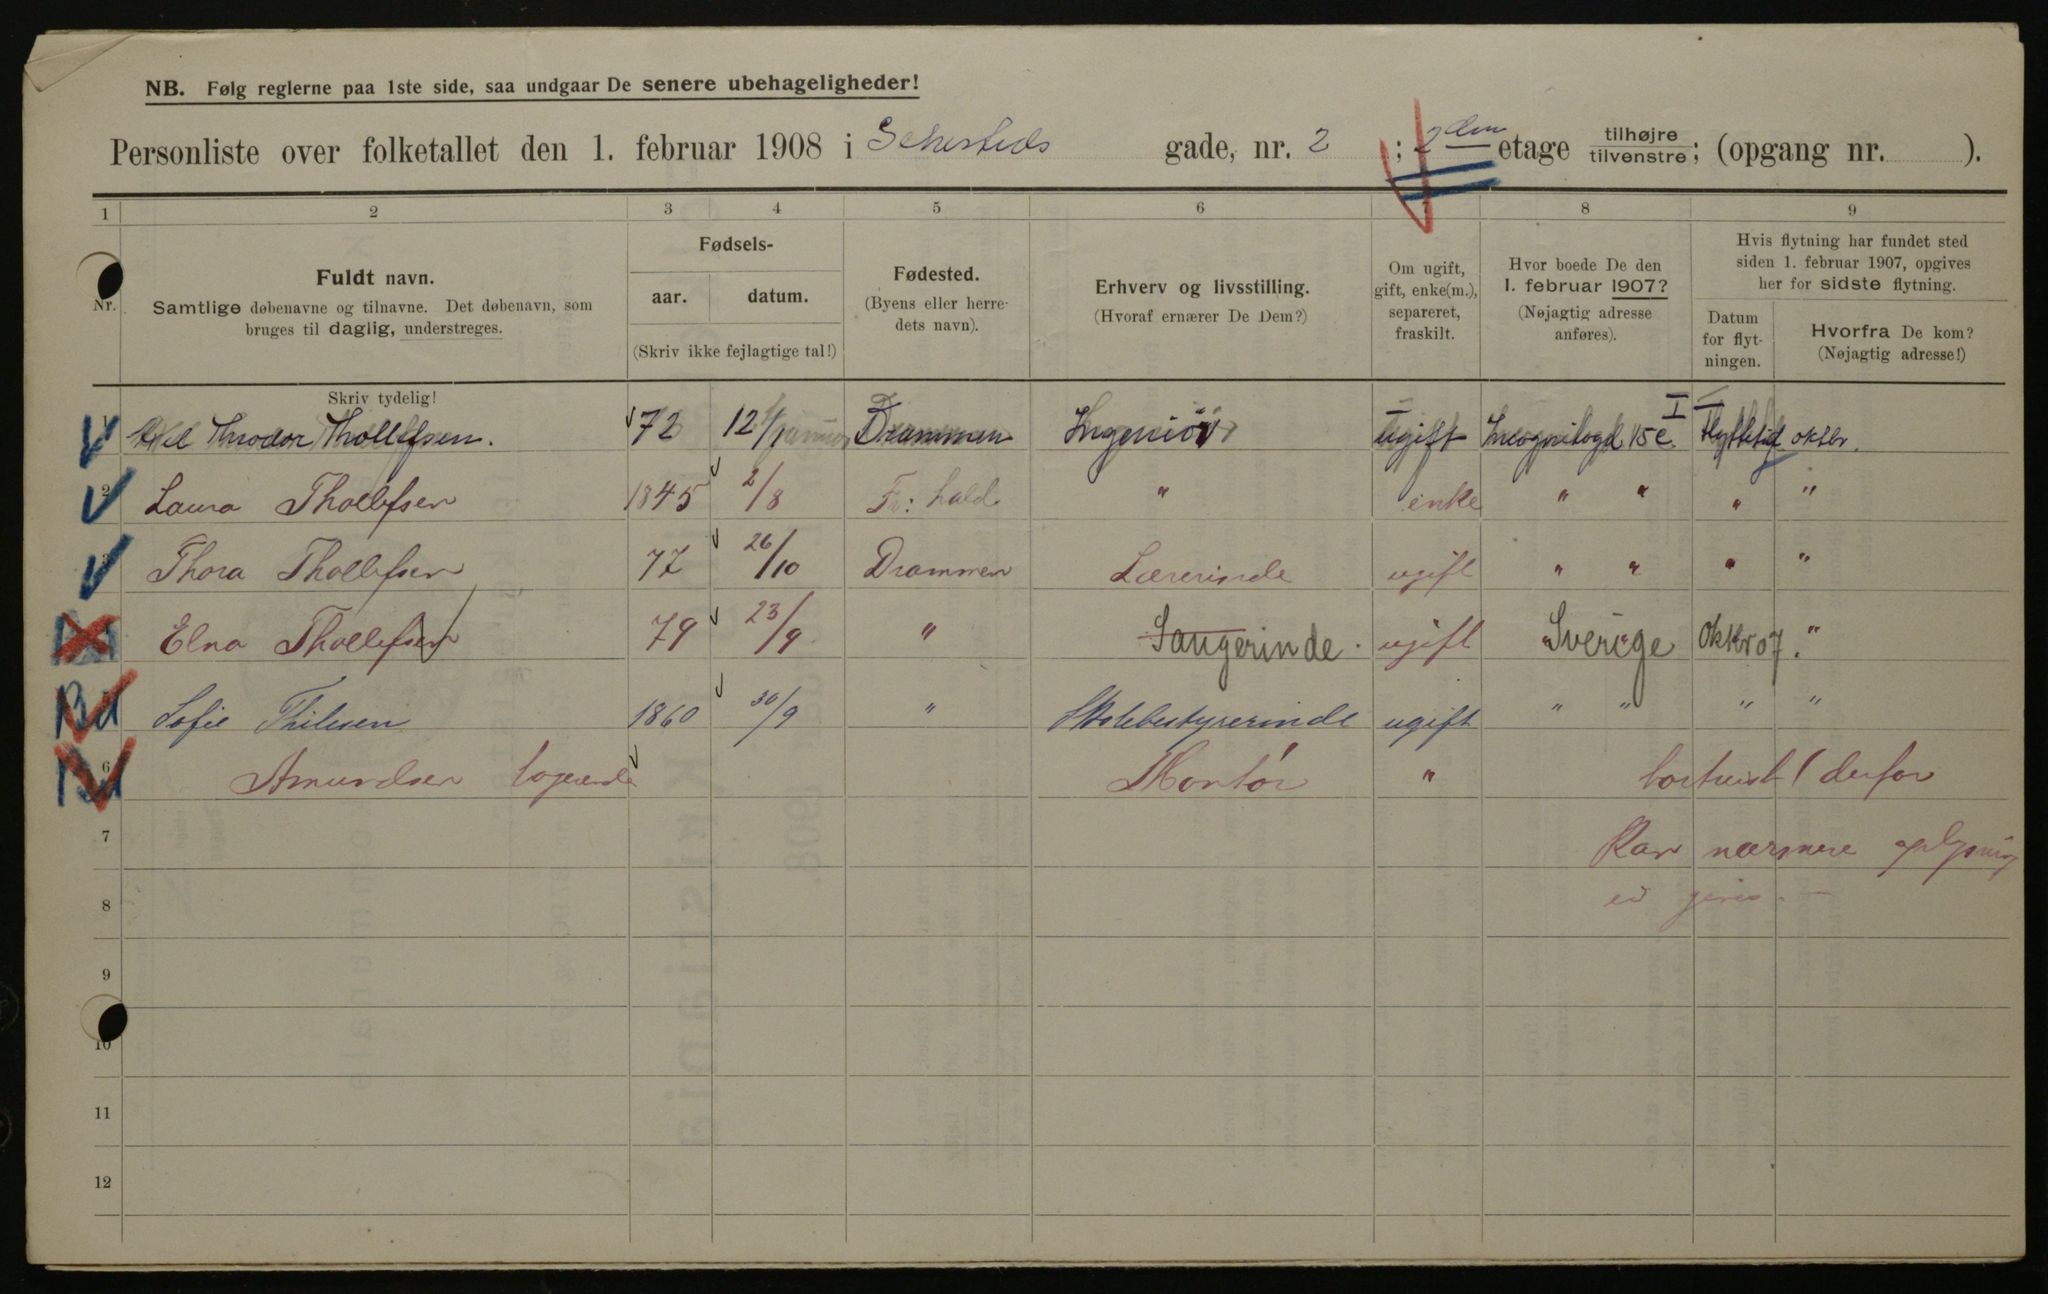 NB. Følg reglerne paa 1ste side, saa undgaar De senere ubehageligheder!
Personliste over folketallet den 1. februar 1908 i Sehesteds gade, nr. 2 ; 2den etage tilhøjre / tilvenstre; (opgang nr. ).
1 2 3 4 5 6 7 8 9
Nr.
Fuldt navn.
Samtlige døbenavne og tilnavne. Det døbenavn, som
bruges til daglig, understreges.
Skriv tydelig!
Fødsels-
aar. datum.
(Skriv ikke fejlagtige tal!)
Fødested.
(Byens eller herre-
dets navn).
Erhverv og livsstilling.
(Hvoraf ernærer De Dem?)
Om ugift,
gift, enke(m.),
separeret,
fraskilt.
Hvor boede De den
1. februar 1907?
(Nøjagtig adresse
anføres).
Hvis flytning har fundet sted
siden 1. februar 1907, opgives
her for sidste flytning.
Datum
for flyt-
ningen.
Hvorfra De kom?
(Nøjagtig adresse!)
1 Axel Theodor Thollefsen. 72 12/1 Drammen Ingeniør ugift Incognitogd 15 e I Flyttetid oktbr.
2 Laura Thollefsen 1845 2/8 Fr: hald " enke " " " "
3 Thora Thollefsen 77 26/10 Drammen Lærerinde ugift " " " "
Elna Thollefsen 79 23/9 " Sangerinde. ugift "Sverige oktbr 07. "
Sofie Thilesen 1860 30/9 " Skolebestyrerinde ugift " " " "
6 Amundsen logerende Kontor " bortreist / derfor
7 Kan nærmere oplysning
8 ei gives. —
9
10
11
12